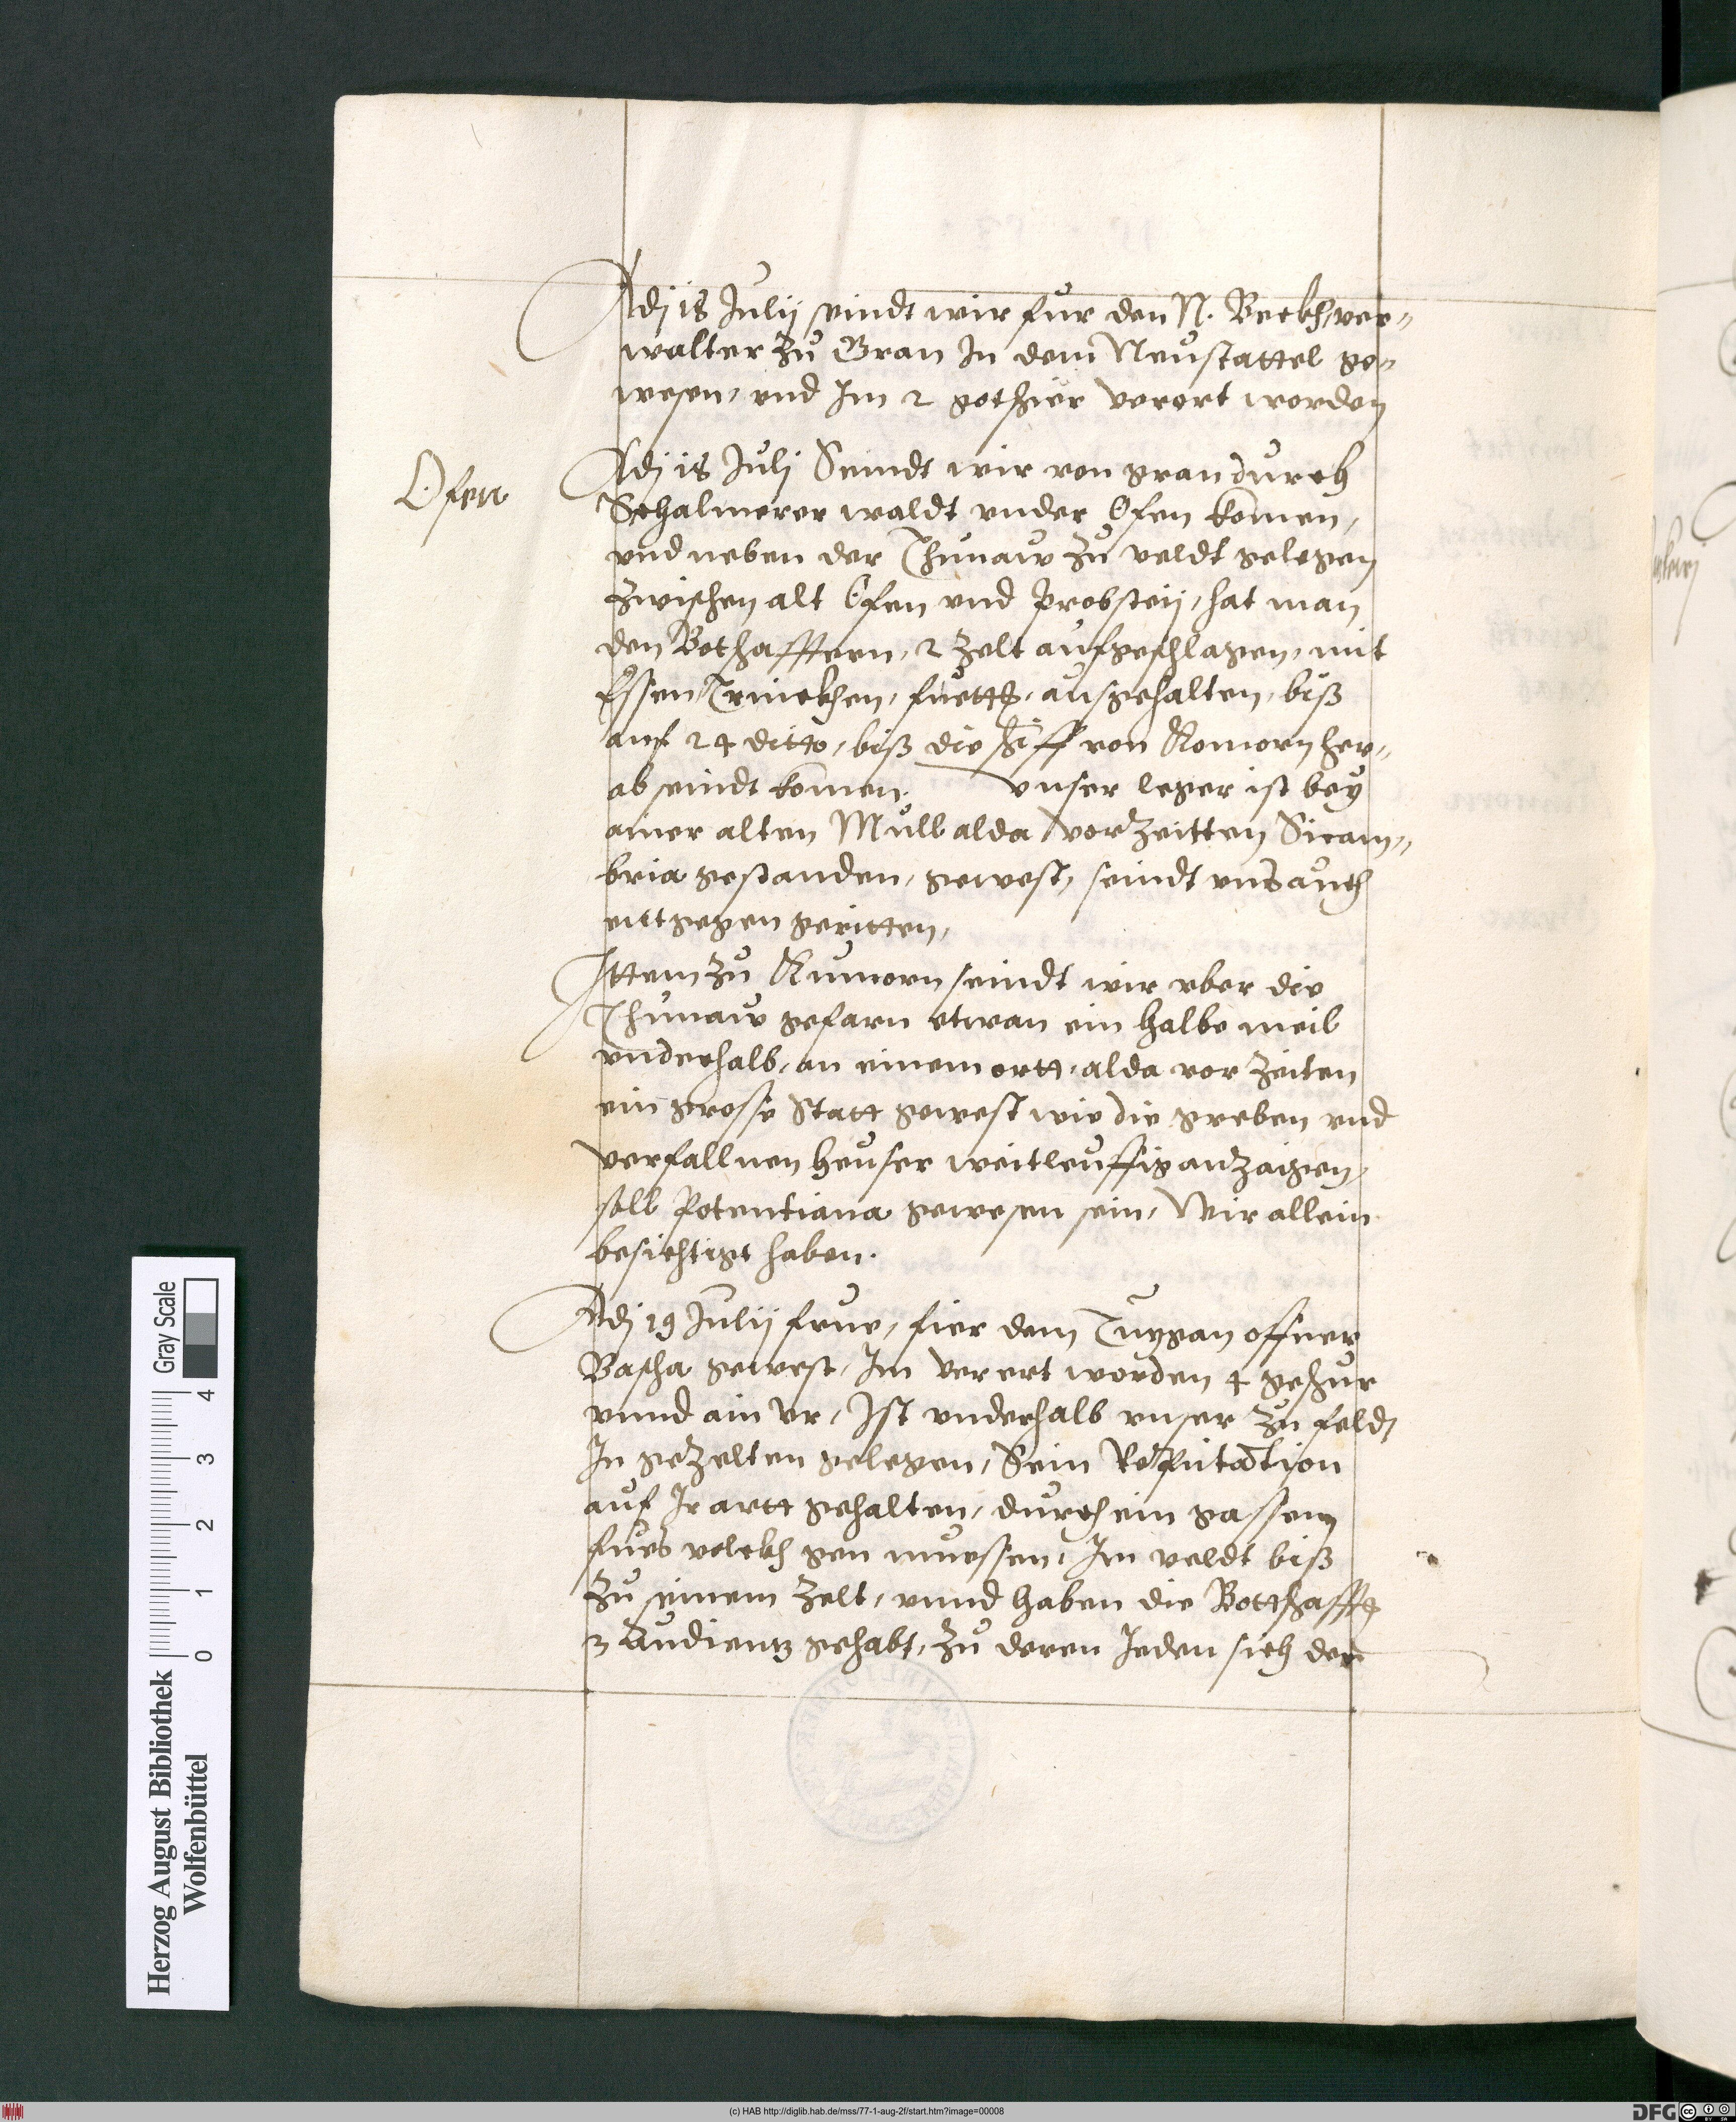 Adj 18 Julij seindt wir fur den N. Beckh, ver-
walter zu Gran In dem Neustattel ge-
wesen, vnd Im 2 gethier verert worden
Ofen
Adj 18 Julj Seindt wir von gran durch
Schalmerer waldt vnder Ofen komen,
vnd neben der Thunaw zu veldt gelegen
zwischen alt Ofen vnd Probsteij, hat man
den Bothafftern, 2 zelt aufgeschlagen, mit
Essen Trinckhen, ausgehalten, biß
auf 24 ditto, biß die schiff von Komorn her-
ab seindt komen. vnser leger ist bey
ainer alten Mull alda vor Zeitten Sicam-
bria gestanden, gewest, seindt vns auch
enttgegen geritten,
Ittem zu Kumorn seindt wir vber die
Thunaw gefarn etwan ein halbe meil
vnderhalb, an einem ortt, alda vor Zeiten
ein grosse Statt gewest wie die greben vnd
verfallnen heuser weitleuffig anzaigen,
soll Potentiana gewesen sein, Wir allein
besichtigt haben.
Adj 19 Julij frue, fier dem Tuygan offner
Bascha gewest, Im verert worden 4 geshur
vnnd ain vr, Ist vnderhalb vnser zu feldt
In gezelten gelegen, Sein Reputation
auf Ir artt gehalten, durch ein gassen
fues volckh gen muessen, Im veldt biß
zu seinem Zelt, vnnd haben die Bottschafft
3 Audientz gehabt, zu deren Jeden sich der
Herzog August Bibliothek
Wolfenbüttel
Gray Scale
0 1 2 3 4
(c) HAB http://diglib.hab.de/mss/77-1-aug-2f/start.htm?image=00008
DFG